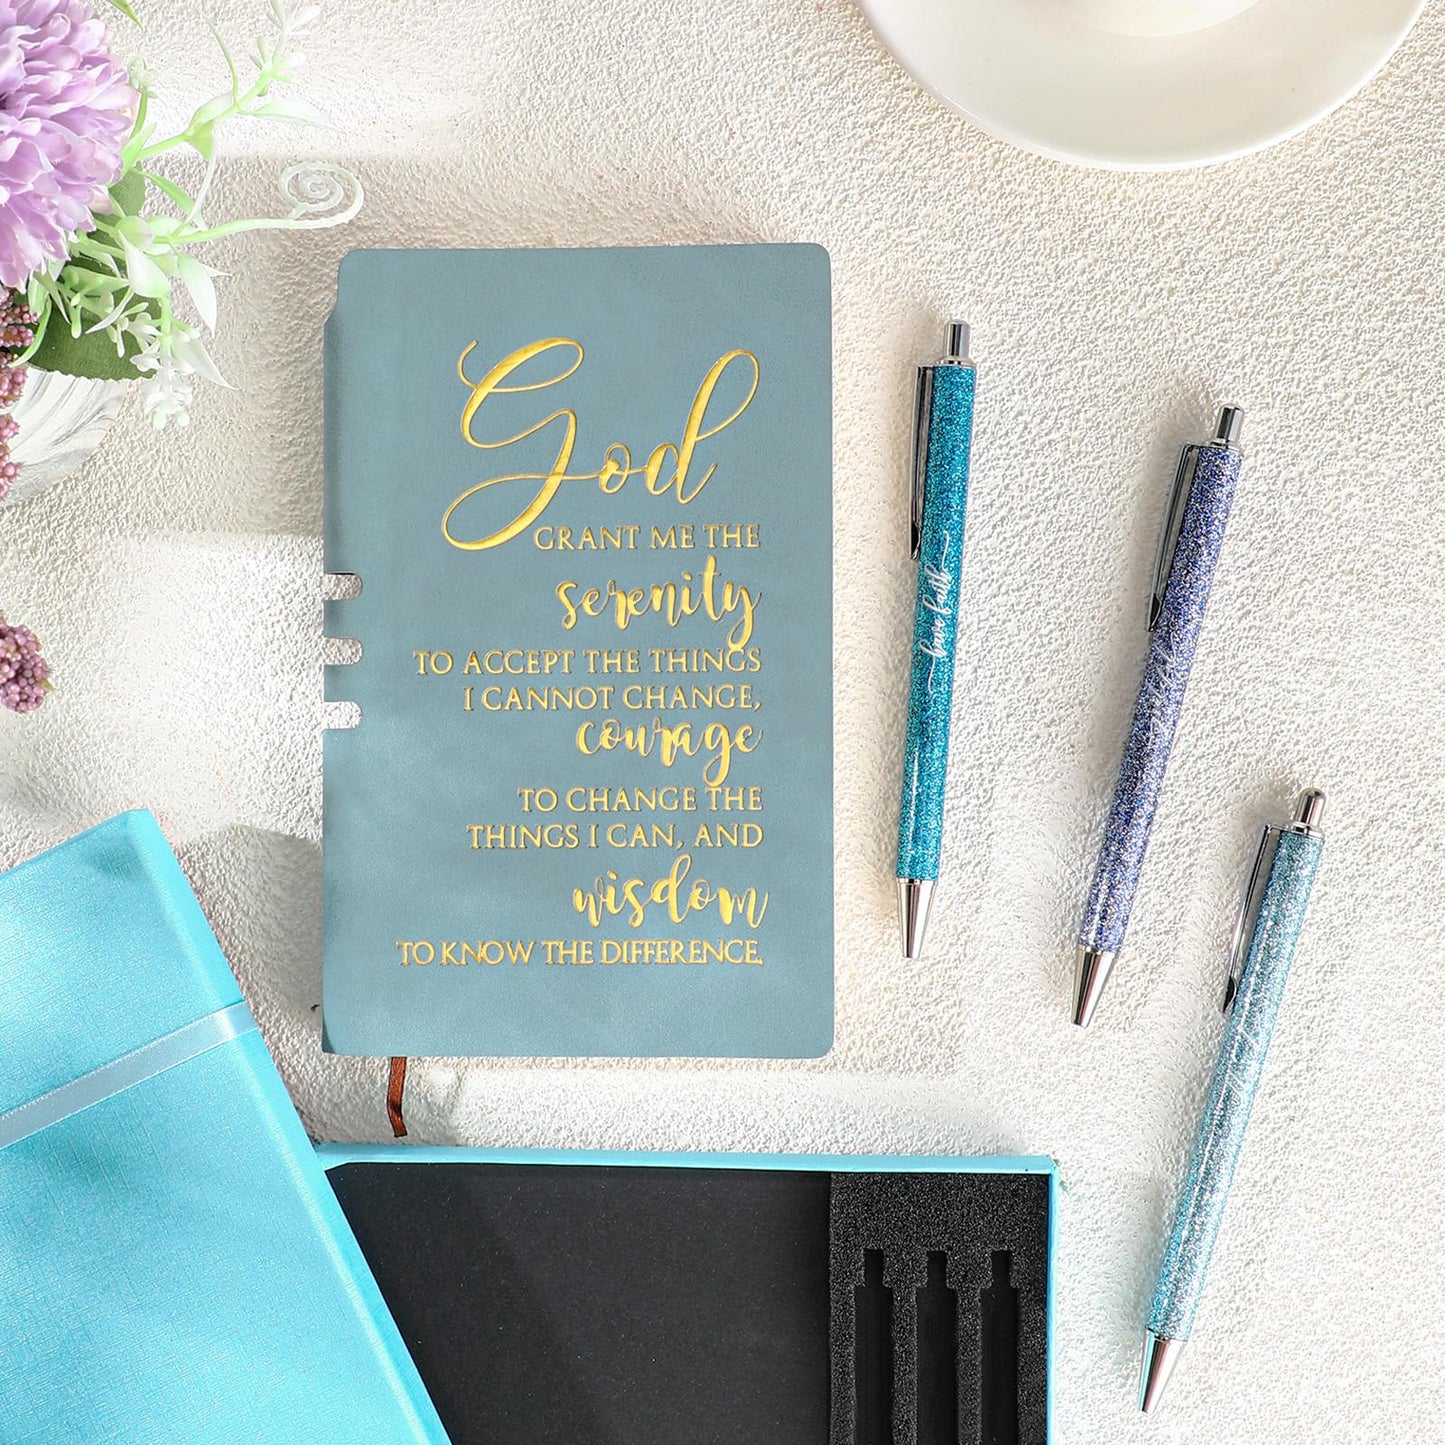 God
GRANT ME THE
serenity
TO ACCEPT THE THINGS
I CANNOT CHANGE,
courage
TO CHANGE THE
THINGS I CAN, AND
wisdom
TO KNOW THE DIFFERENCE.